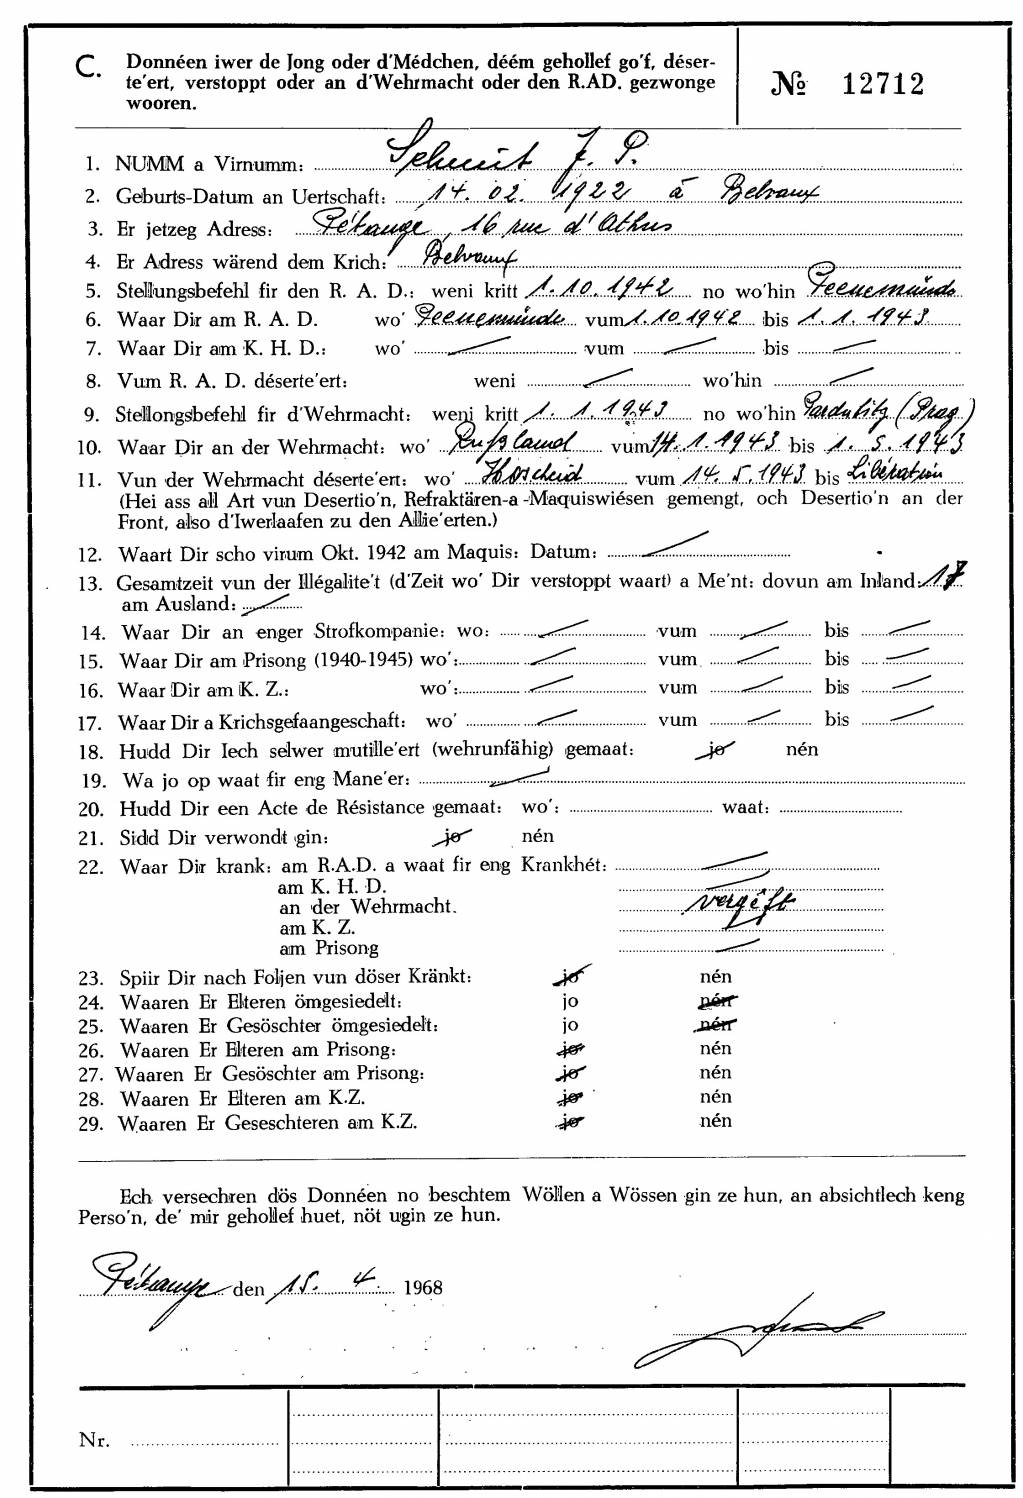 C. Donnéen iwer de Jong oder d'Médchen, déém gehollef go'f, déser-
te'ert, verstoppt oder an d'Wehrmacht oder den R.AD. gezwonge
wooren.
№ 12712
1. NUMM a Virnumm: Schmit J. P.
2. Geburts-Datum an Uertschaft: 14. 02. 1922 à Belvaux
3. Er jetzeg Adress: Pétange, 16 rue d'Athus
4. Er Adress wärend dem Krich: Belvaux
5. Stellungsbefehl fir den R. A. D.: weni kritt 1. 10. 1942 no wo'hin Peenemünde
6. Waar Dir am R. A. D. wo' Peenemünde vum 1. 10. 1942 bis 1. 1. 1943
7. Waar Dir am K. H. D.: wo' vum bis
8. Vum R. A. D. déserte'ert: weni wo'hin
9. Stellongsbefehl fir d'Wehrmacht: weni kritt 1. 1. 1943 no wo'hin Pardubitz (Prag)
10. Waar Dir an der Wehrmacht: wo' Rußland vum 14. 1. 1943 bis 1. 5. 1943
11. Vun der Wehrmacht déserte'ert: wo' Hoscheid vum 14. 5. 1943 bis Libération
(Hei ass all Art vun Desertio'n, Refraktären-a-Maquiswiésen gemengt, och Desertio'n an der
Front, also d'Iwerlaafen zu den Allie'erten.)
12. Waart Dir scho virum Okt. 1942 am Maquis: Datum:
13. Gesamtzeit vun der Illégalite't (d'Zeit wo' Dir verstoppt waart) a Me'nt: dovun am Inland: 17
am Ausland:
14. Waar Dir an enger Strofkompanie: wo: vum bis
15. Waar Dir am Prisong (1940-1945) wo': vum bis
16. Waar Dir am K. Z.: wo': vum bis
17. Waar Dir a Krichsgefaangeschaft: wo' vum bis
18. Hudd Dir Iech selwer mutille'ert (wehrunfähig) gemaat: jo nén
19. Wa jo op waat fir eng Mane'er:
20. Hudd Dir een Acte de Résistance gemaat: wo': waat:
21. Sidd Dir verwondt gin: jo nén
22. Waar Dir krank: am R.A.D. a waat fir eng Krankhét:
am K. H. D.
an der Wehrmacht. vergëft
am K. Z.
am Prisong
23. Spiir Dir nach Foljen vun döser Kränkt: jo nén
24. Waaren Er Elteren ömgesiedelt: jo nén
25. Waaren Er Gesöschter ömgesiedelt: jo nén
26. Waaren Er Elteren am Prisong: jo nén
27. Waaren Er Gesöschter am Prisong: jo nén
28. Waaren Er Elteren am K.Z. jo nén
29. Waaren Er Geseschteren am K.Z. jo nén
Ech versechren dös Donnéen no beschtem Wöllen a Wössen gin ze hun, an absichtlech keng
Perso'n, de' mir gehollef huet, nöt ugin ze hun.
Pétange den 15. 4. 1968
Nr.